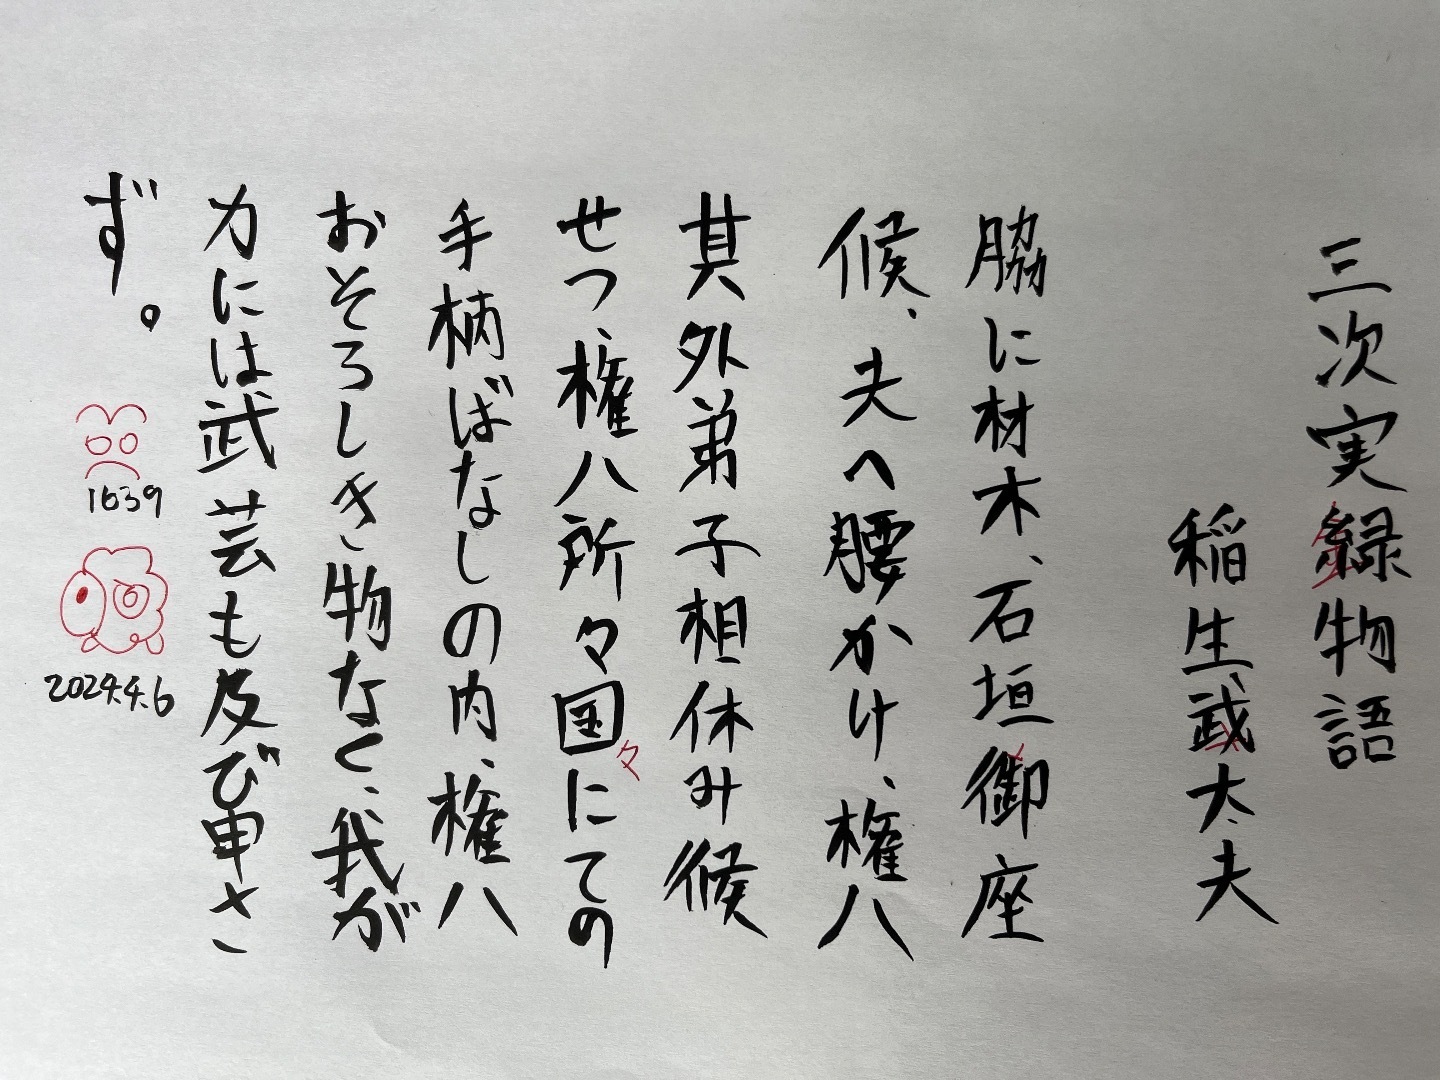 三次実録物語
稲生武太夫
脇に材木、石垣御座
候、夫へ腰かけ、権八
其外弟子相休み候
せつ、権八所々国々にての
手柄ばなしの内、権八
おそろしき物なく、我が
力には武芸も及び申さ
ず。
1639
2024.4.6